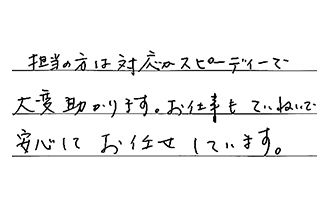 担当の方は対応がスピーディーで
大変助かります。お仕事もていねいで
安心して お任せしています。